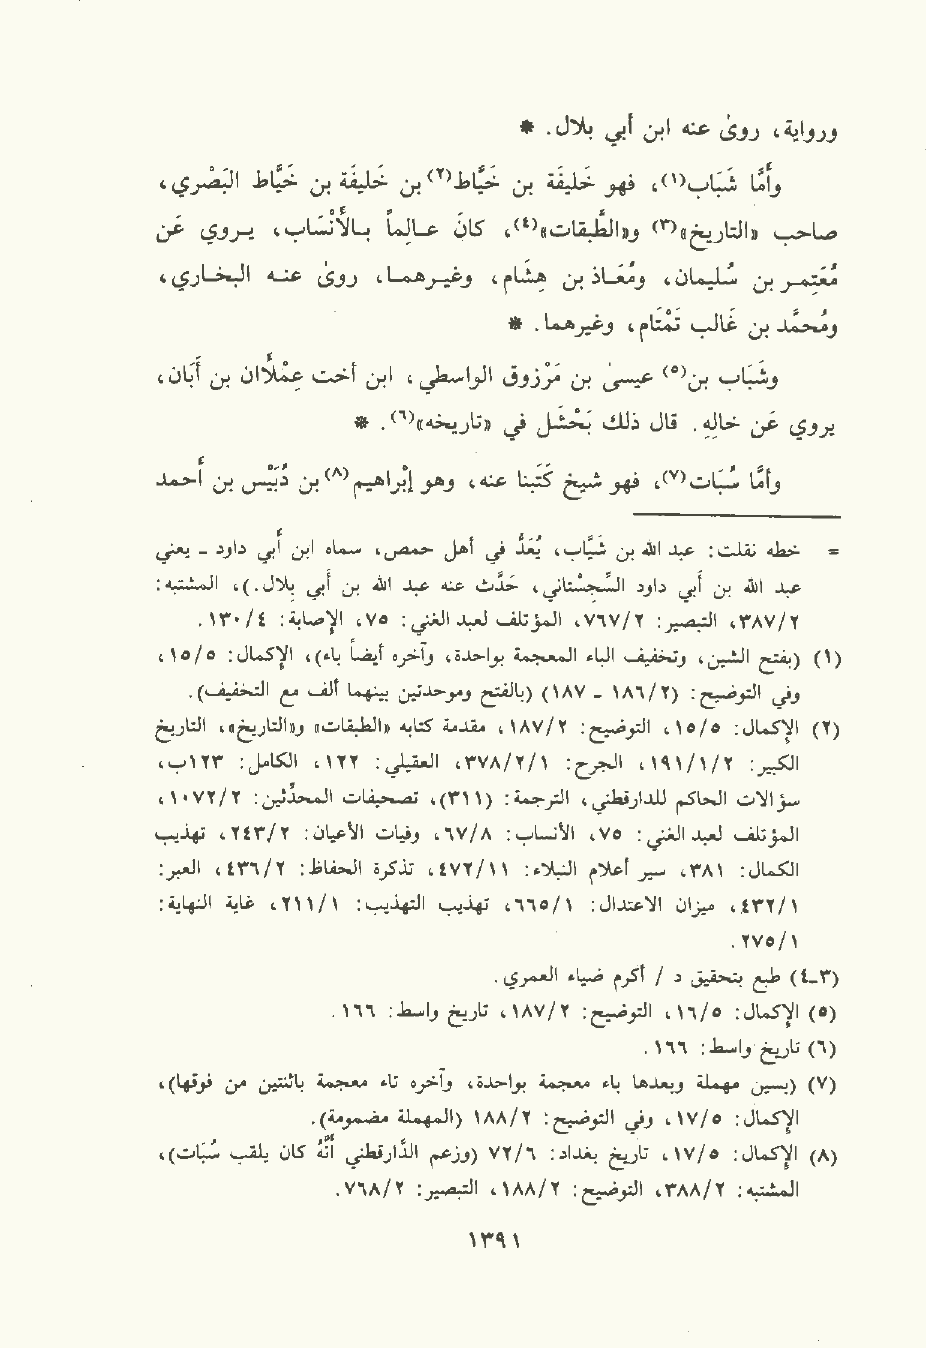 ورواية، روىٰ عنه ابن أبي بلال. *
وأمَّا شَبَاب(١)، فهو خَليفَة بن خَيَّاط(٢) بن خَليفَة بن خَيَّاط البَصْري،
صاحب «التاريخ»(٣) و«الطَّبقات»(٤)، كانَ عالِماً بالأنْسَاب، يروي عَن
مُعْتمِر بن سُليمان، ومُعَاذ بن هِشام، وغيرهما، روىٰ عنه البخاري،
ومُحمَّد بن غَالب تَمْتَام، وغيرهما. *
وشَبَاب بن(٥) عيسىٰ بن مَرْزوق الواسطي، ابن أخت عِمْلَان بن أبَان،
يروي عَن خالِهِ. قال ذلك بَحْشَل في «تاريخه»(٦). *
وأمَّا سُبَات(٧)، فهو شيخ كَتَبنا عنه، وهو إبْراهيم(٨) بن دُبَيْس بن أحمد
= خطه نقلت: عبد الله بن شيَّاب، يُعَدُّ في أهل حمص، سماه ابن أبي داود - يعني
عبد الله بن أبي داود السِّجِسْتاني، حَدَّث عنه عبد الله بن أبي بلال.)، المشتبه:
٣٨٧/٢، التبصير: ٧٦٧/٢، المؤتلف لعبد الغني: ٧٥، الإصابة: ١٣٠/٤.
(١) (بفتح الشين، وتخفيف الباء المعجمة بواحدة، وآخره أيضاً باء)، الإكمال: ١٥/٥،
وفي التوضيح: (١٨٦/٢ - ١٨٧) (بالفتح وموحدتين بينهما ألف مع التخفيف).
(٢) الإكمال: ١٥/٥، التوضيح: ١٨٧/٢، مقدمة كتابه «الطبقات» و«التاريخ»، التاريخ
الكبير: ١٩١/١/٢، الجرح: ٣٧٨/٢/١، العقيلي: ١٢٢، الكامل: ١٢٣ب،
سؤالات الحاكم للدارقطني، الترجمة: (٣١١)، تصحيفات المحدِّثين: ١٠٧٢/٢،
المؤتلف لعبد الغني: ٧٥، الأنساب: ٦٧/٨، وفيات الأعيان: ٢٤٣/٢، تهذيب
الكمال: ٣٨١، سير أعلام النبلاء: ٤٧٢/١١، تذكرة الحفاظ: ٤٣٦/٢، العبر:
٤٣٢/١، ميزان الاعتدال: ٦٦٥/١، تهذيب التهذيب: ٢١١/١، غاية النهاية:
٢٧٥/١.
(٣-٤) طبع بتحقيق د / أكرم ضياء العمري.
(٥) الإكمال: ١٦/٥، التوضيح: ١٨٧/٢، تاريخ واسط: ١٦٦.
(٦) تاريخ واسط: ١٦٦.
(٧) (بسين مهملة وبعدها باء معجمة بواحدة، وآخره تاء معجمة باثنتين من فوقها)،
الإكمال: ١٧/٥، وفي التوضيح: ١٨٨/٢ (المهملة مضمومة).
(٨) الإكمال: ١٧/٥، تاريخ بغداد: ٧٢/٦ (وزعم الدَّارقطني أنَّهُ كان يلقب سُبَات)،
المشتبه: ٣٨٨/٢، التوضيح: ١٨٨/٢، التبصير: ٧٦٨/٢.
١٣٩١